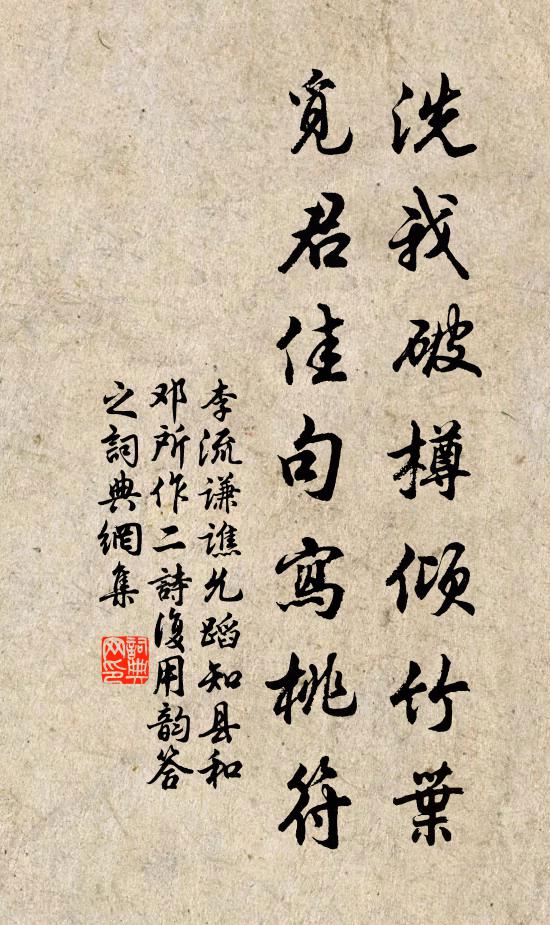 洗我破樽倾竹葉
觅君佳句寫桃符
李流谦譙允蹈知县和
邓所作二詩復用韵答
之詞典網集
詞典
网印